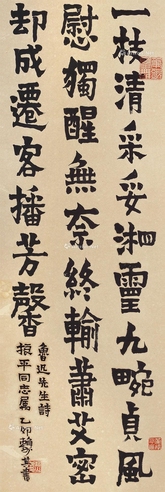 一枝清采妥湘靈九畹貞風
慰獨醒無奈終輸蕭艾密
却成遷客播芳馨香
魯迅先生詩
振平同志属乙卯